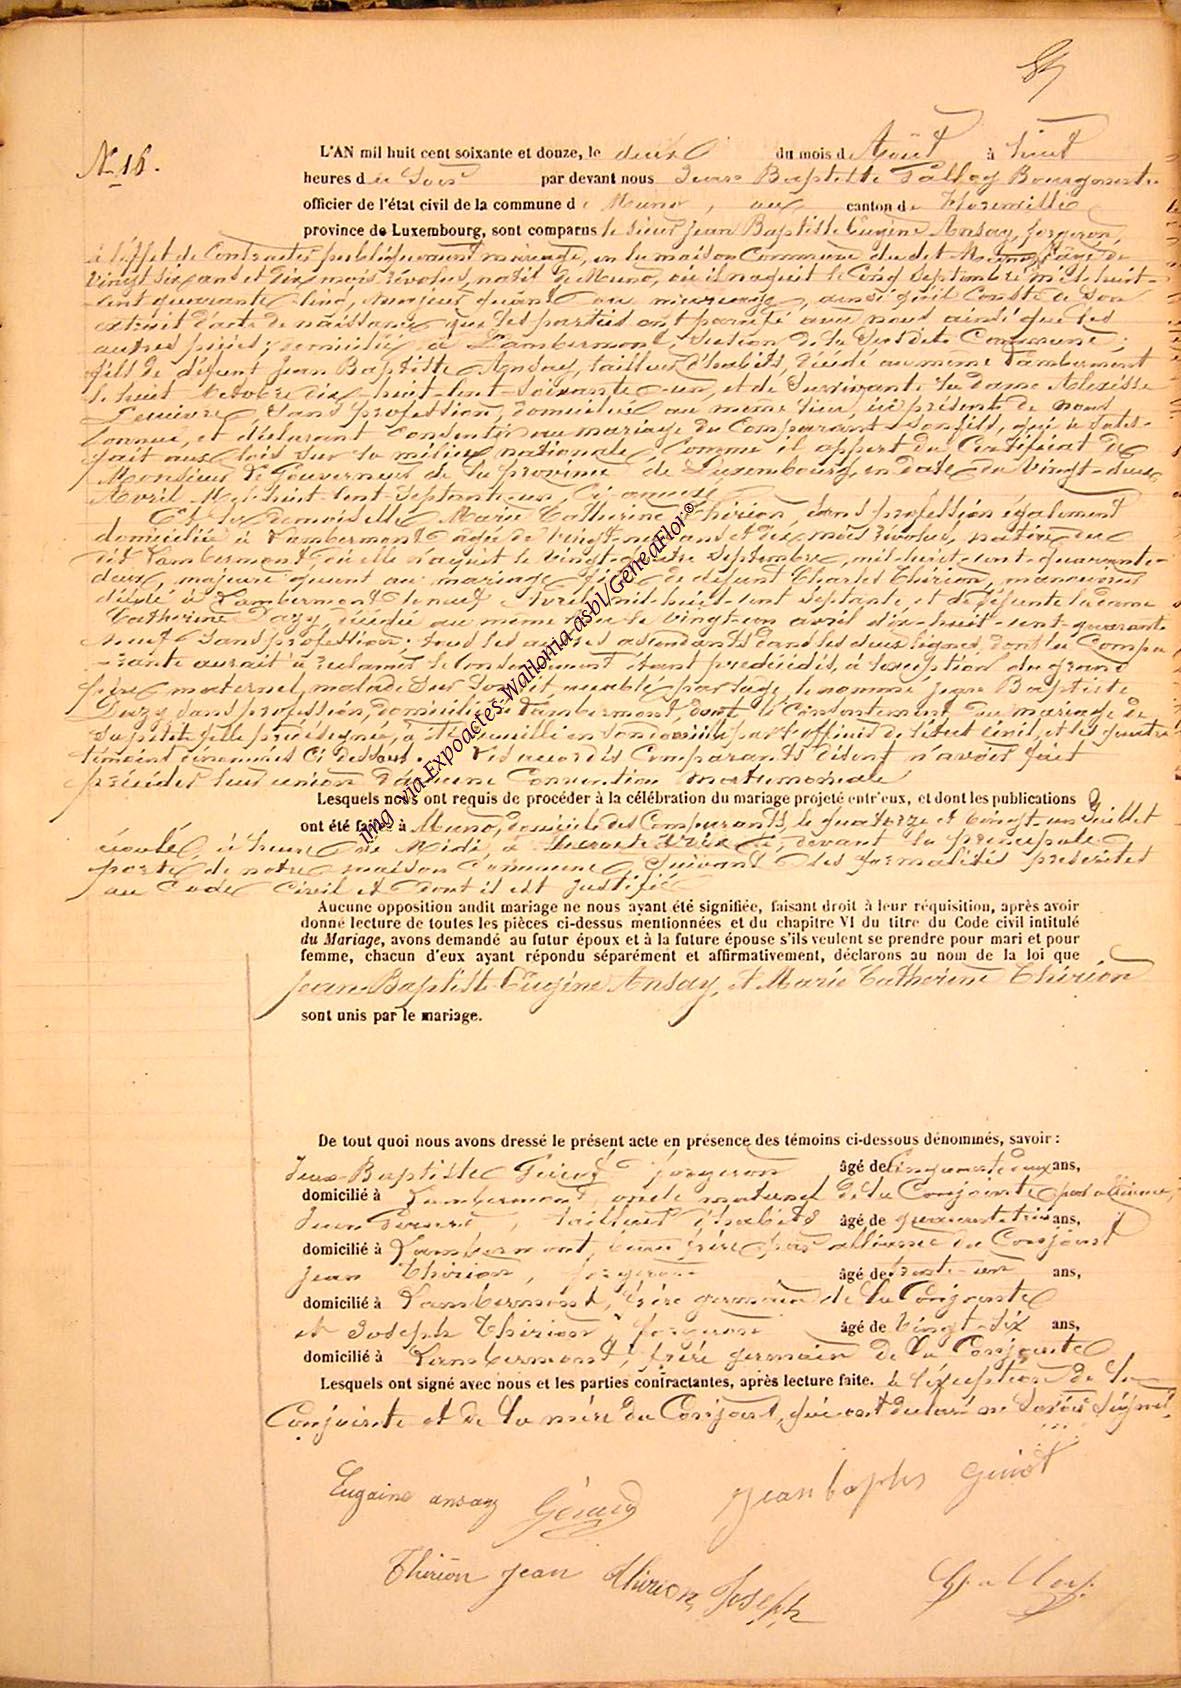 N. 16.
L'AN mil huit cent soixante et douze, le deux du mois d Août à huit
heures d u Soir par devant nous Jean Baptiste Bourgmestre
officier de l'état civil de la commune d e Muno, canton de Florenville
province de Luxembourg, sont comparus le sieur Jean Baptiste Eugène Ansay, forgeron,
à l'effet de Contracter publiquement mariage, en la maison Commune du dit Muno, âgé de
vingt six ans et dix mois révolus, natif de Muno, où il naquit le Cinq Septembre mil-huit-
cent quarante-cinq, Majeur quant au mariage, ainsi qu'il Conste de Son
extrait d'acte de naissance que les parties ont parafé avec nous ainsi que les
autres pièces; domicilié à Lambermont, section de la Susdite Commune;
fils de défunt Jean Baptiste Ansay, tailleur d'habits, décédé au même Lambermont
le huit Octobre dix-huit-cent-soixante-un, et de Survivante la Dame Alexisse
Sans profession, domiciliée au même lieu, ici présente de nous
Connue, et déclarant Consentir au mariage du Comparant Son fils, qui a satis-
fait aux lois sur la milice nationale, Comme il appert du Certificat de
Monsieur le Gouverneur de la province de Luxembourg, en date du Vingt-deux
Avril Mil-huit-cent-Septante-un, Ci annexé
Et la demoiselle Marie Catherine Thirion, sans profession également
domiciliée à Lambermont âgée de vingt-neuf ans et dix mois révolus, native du
dit Lambermont, où elle naquit le vingt-quatre Septembre, mil-huit-cent-quarante-
deux, majeure quant au mariage, fille de défunt Charles Thirion, manoeuvre
décédé à Lambermont le neuf Avril mil-huit-cent Septante, et de défunte la dame
Catherine Dazy, décédée au même lieu le vingt-un avril dix-huit-cent-quarante
neuf Sans profession; tous les autres ascendants dans les deux lignes, dont la Compa
-rante aurait à réclamer le Consentement étant prédécédés, à l'exception du grand
père maternel, malade sur Son lit, accablé par l'age, le nommé Jean Baptiste
Dazy, Sans profession, domicilié à Lambermont, dont le Consentement au mariage de
Sa petite fille prédésignée, a été recueilli en Son domicile par l'officier de l'état civil, et les quatre
témoins dénommés Ci dessous. Les accordés Comparants disent n'avoir fait
précéder leur union d'aucune Convention matrimoniale
Lesquels nous ont requis de procéder à la célébration du mariage projeté entr'eux, et dont les publications
ont été faites à Muno, domicile des Comparants, le quatorze et Vingt-un Juillet
écoulé, à l'heure de Midi, devant la principale
porte de notre maison Commune Suivant les formalités prescrites
au Code Civil et dont il est justifié
Aucune opposition audit mariage ne nous ayant été signifiée, faisant droit à leur réquisition, après avoir
donné lecture de toutes les pièces ci-dessus mentionnées et du chapitre VI du titre du Code civil intitulé
du Mariage, avons demandé au futur époux et à la future épouse s'ils veulent se prendre pour mari et pour
femme, chacun d'eux ayant répondu séparément et affirmativement, déclarons au nom de la loi que
Jean-Baptiste Eugène Ansay, et Marie Catherine Thirion
sont unis par le mariage.
De tout quoi nous avons dressé le présent acte en présence des témoins ci-dessous dénommés, savoir :
Jean-Baptiste forgeron âgé de Cinquante deux ans,
domicilié à Lambermont, oncle maternel de la Conjointe par alliance,
Jean Gérard, tailleur d'habits âgé de quarante trois ans,
domicilié à Lambermont, beau frère par alliance du Conjoint
Jean Thirion, forgeron âgé de trente-un ans,
domicilié à Lambermont, frère germain de la Conjointe
et Joseph Thirion, forgeron âgé de Vingt-Six ans,
domicilié à Lambermont, frère germain de la Conjointe
Lesquels ont signé avec nous et les parties contractantes, après lecture faite. à l'éxception de la
Conjointe et de la mère du Conjoint, qui ont déclaré ne Savoir Signer.
Eugaine ansay Gérard Jean baptis
Thirion Jean thirion Joseph
img via Expoactes-Wallonia-asbl/GeneaFlor©